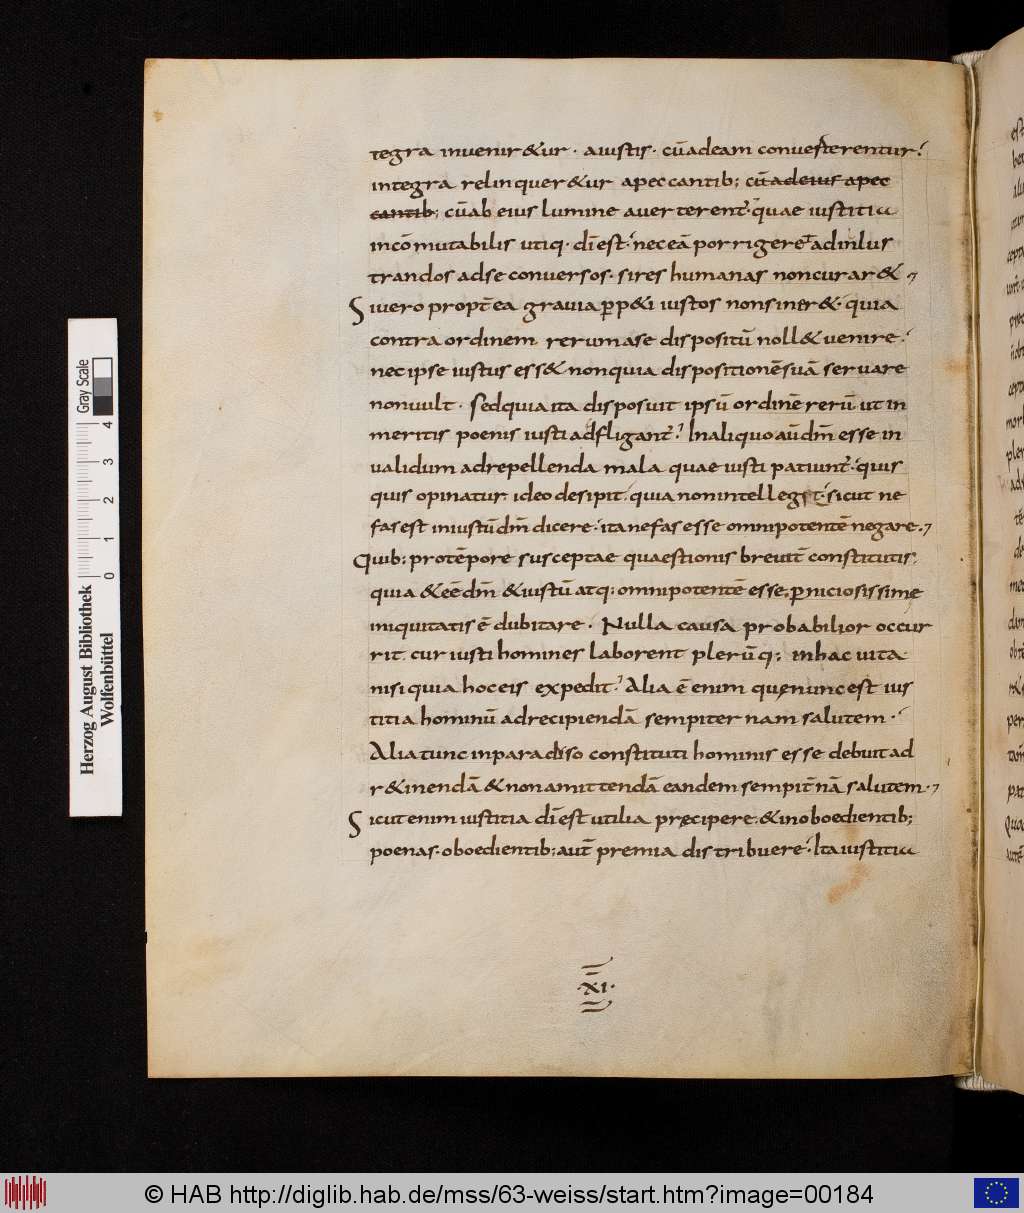 tegra invenir&ur · aiustis · cū adeam converterentur
integra relinquer&ur apeccantib; cū ad eius apec
cantib; cū ab eius lumine averterent̄ · quae iustitia
incōmutabilis utiq· dī est · nec eā porrigere ad inlus
trandos adse conversos · si res humanas non curar&
Si vero propt̄ea gravia ꝑp&i iustos non siner& · quia
contra ordinem rerum ase dispositū noll& venire
nec ipse iustus ess& non quia dispositionē suā servare
non vult · sed quia ita disposuit ipsū ordinē rerū ut in
meritis poenis iusti adfligant̄ In aliquo aū dm̄ esse in
validum ad repellenda mala quae iusti patiunt̄ · quis
quis opinatur · ideo desipit · quia non intelleg t · sicut ne
fas est iniustū dm̄ dicere · ita nefas esse omnipotentē negare
Quib; pro tēpore susceptae quaestionis brevit̄ constitutis
quia & eē dm̄ & iustū atq; omnipotentē esse ꝑniciosissime
iniquitatis ē dubitare · Nulla causa probabilior occur
rit cur iusti homines laborent plerūq; in hac vita
nisi quia hoc eis expedit Alia ē enim quę nunc est ius
titia hominū ad recipiendā sempiternam salutem
Alia tunc in paradiso constituti hominis esse debuit ad
r&inendā & non amittendā eandem sempit̄nā salutem
Sicut enim iustitia dī est utilia pręcipere & inoboedientib;
poenas · oboedientib; aut̄ premia distribuere · Ita iustitia
· XI ·
Herzog August Bibliothek
Wolfenbüttel
0 1 2 3 4
Gray Scale
© HAB http://diglib.hab.de/mss/63-weiss/start.htm?image=00184